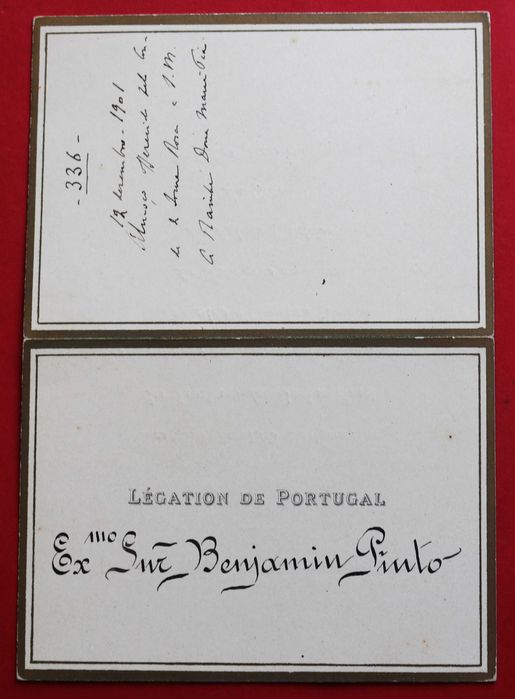 - 336 -
12 dezembro - 1901
Almoço offerecido pelo Con-
de de Sousa Rosa a S. M.
a Rainha Dona Maria Pia.
LÉGATION DE PORTUGAL
Ex.mo Snr. Benjamin Pinto